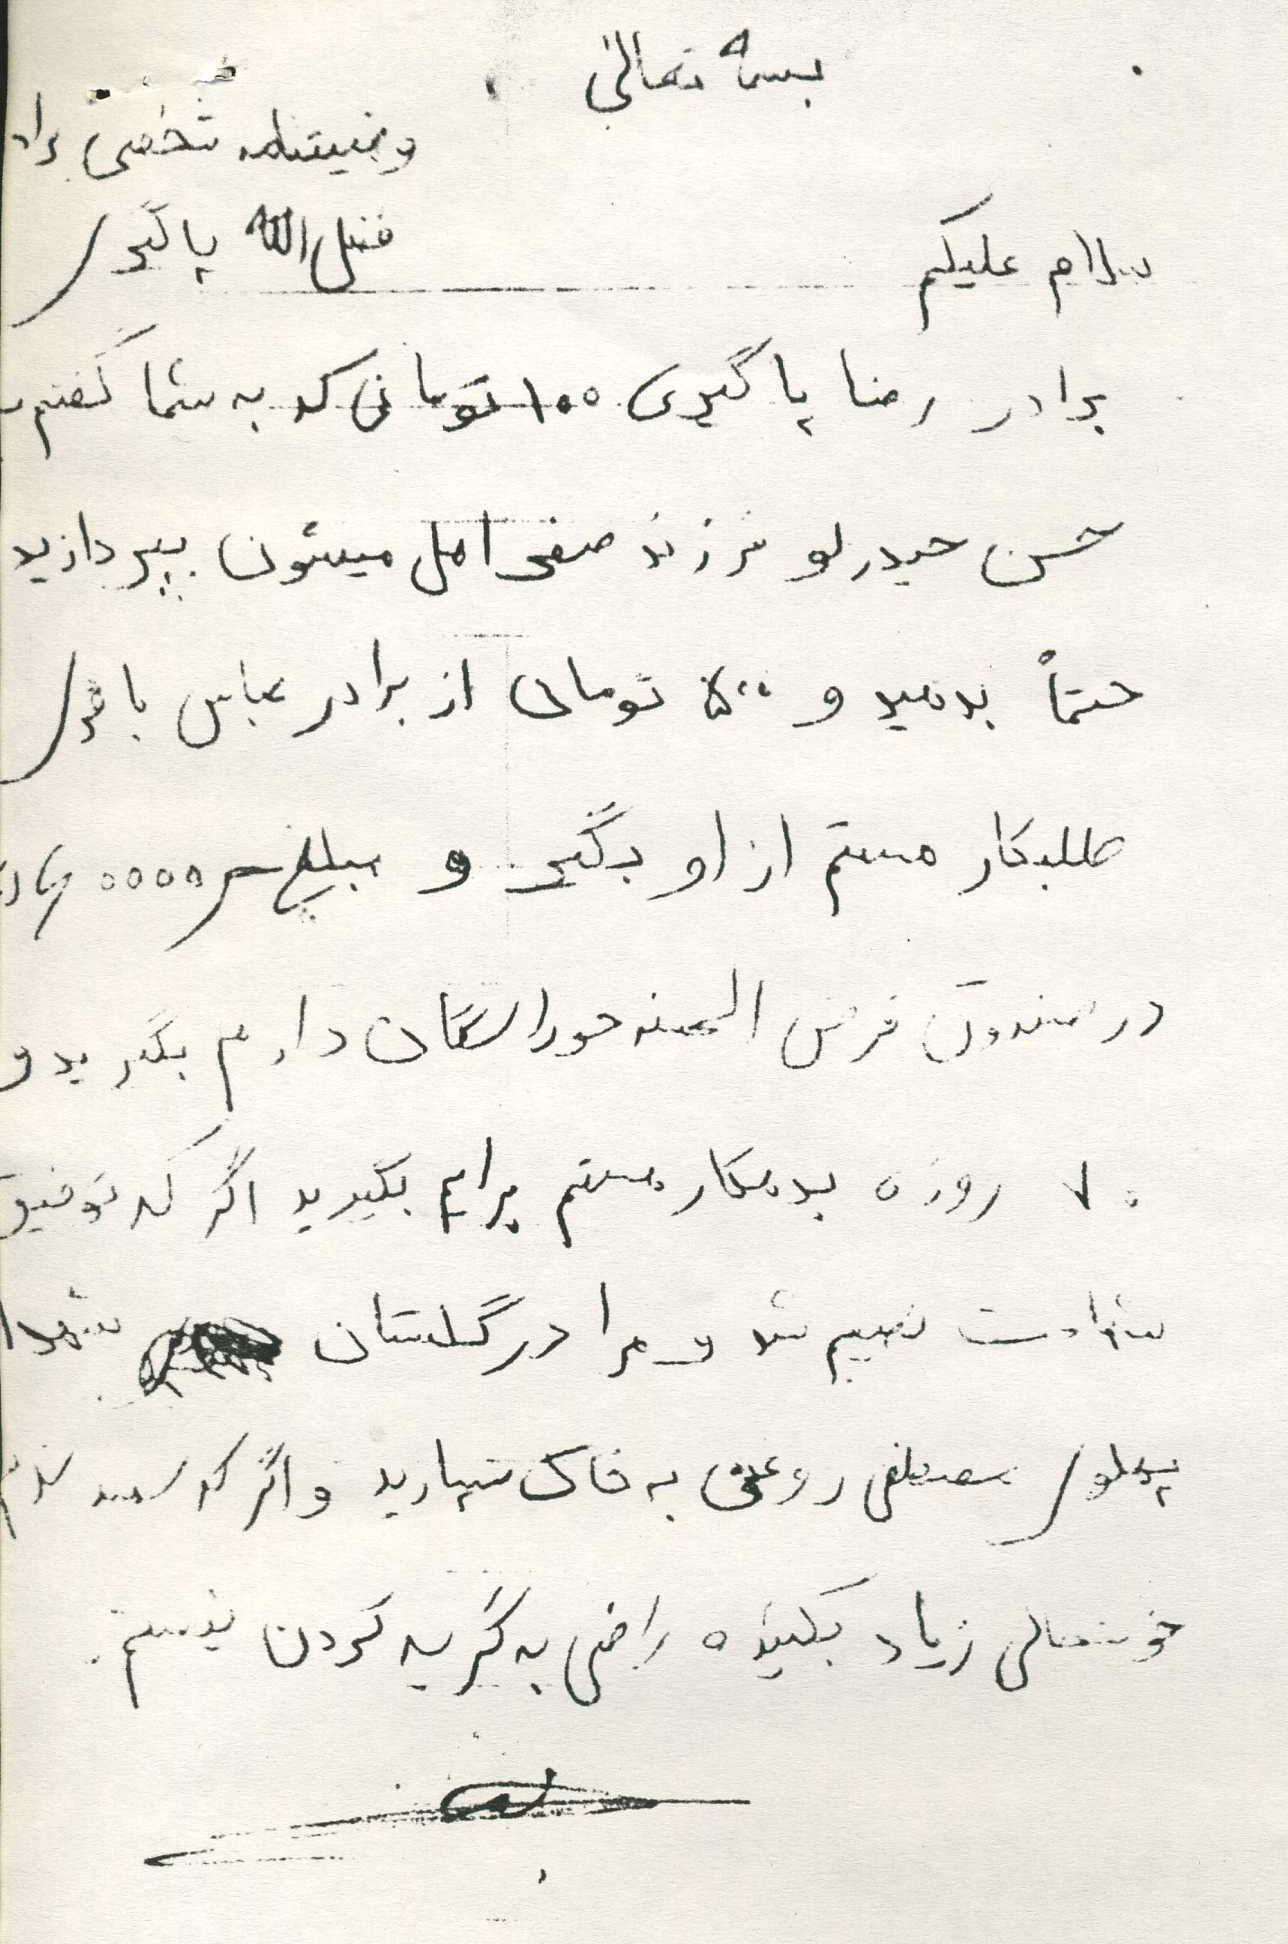 بسمه تعالی
وصیتنامه شخصی براد
فضل الله پاگیری
سلام علیکم
برادر رضا پاگیری ۱۰۰ تومانی که به شما گفتم
حسن حیدرلو فرزند صفی اهل میشون بپردازید
حتماً بدهید و ۵۰۰ تومان از برادر عباس باقری
طلبکار هستم از او بگیر و مبلغ
در صندوق قرض الحسنه خوراسگان دارم بگیرید و
۷۰ روزه بدهکار هستم برایم بگیرید اگر که توفیق
شهادت نصیبم شد و مرا در گلستان شهدا
پهلوی مصطفی روغنی به خاک سپارید و اگر که شهید شدم
خوشحالی زیاد بکنید راضی به گریه کردن نیستم.